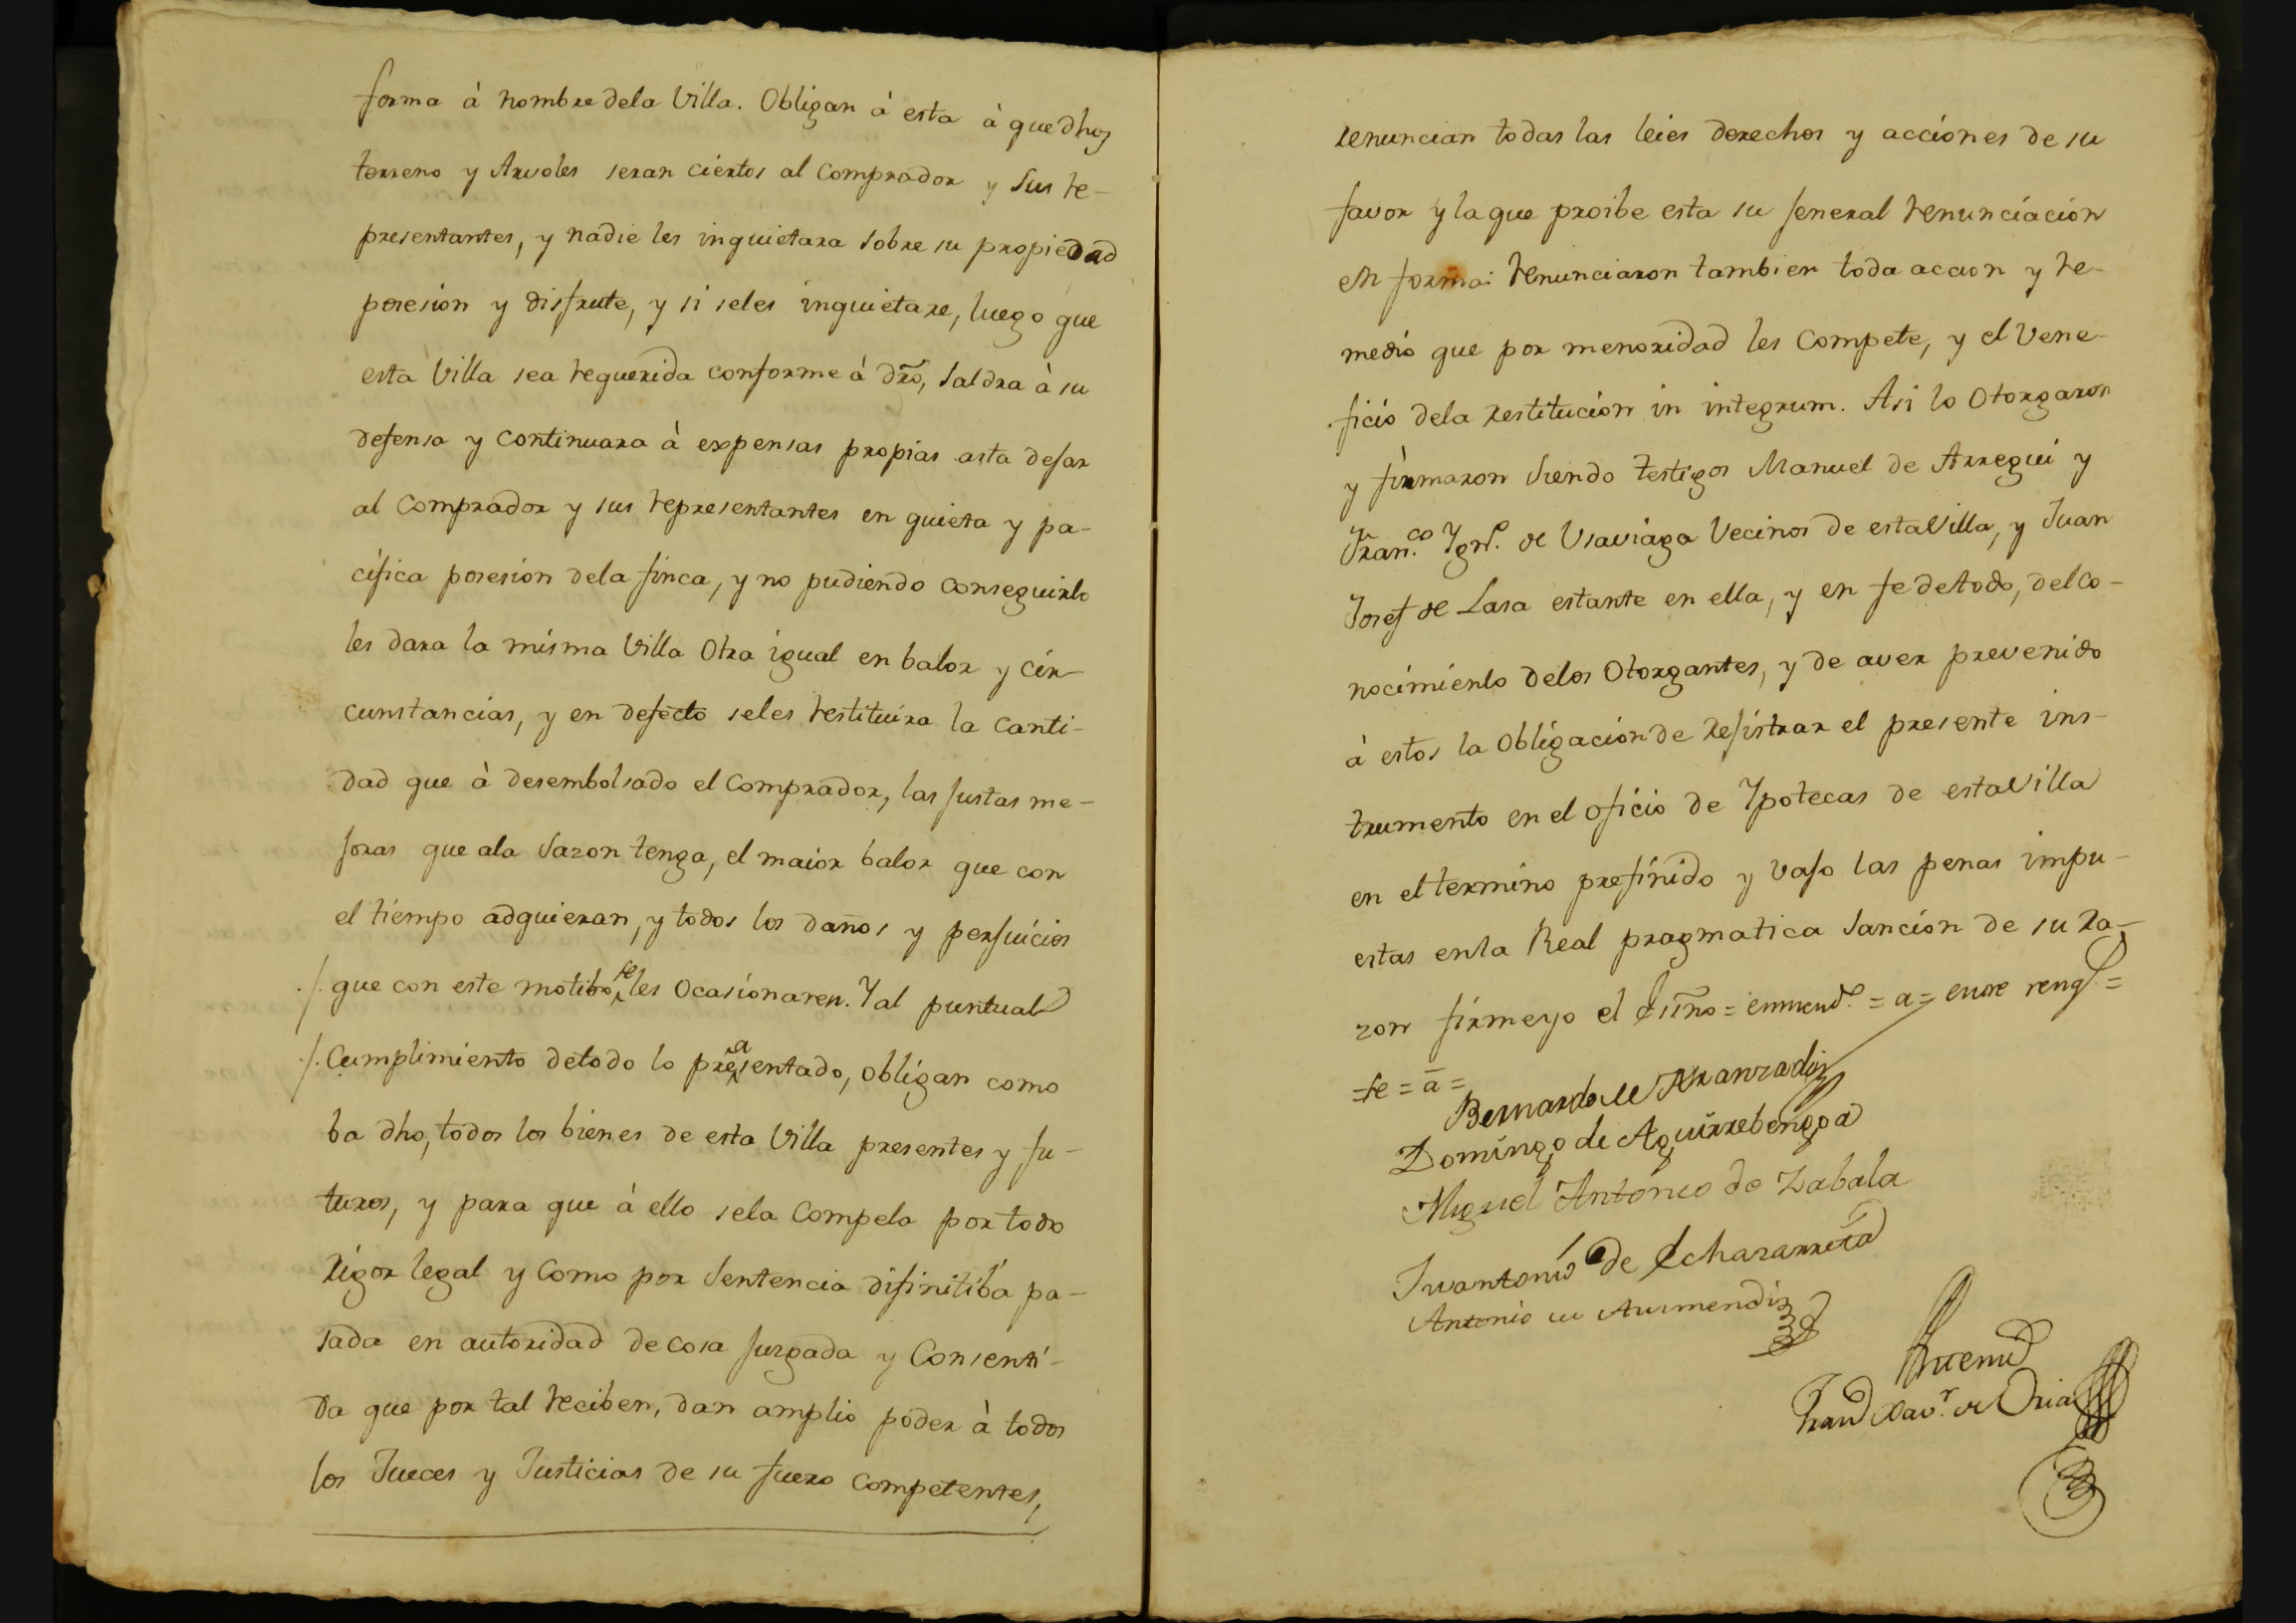 forma à nombre dela Villa. Obligan à esta à que dhos
terreno y Arvoles seran ciertos al Comprador y sus re-
presentantes, y nadie les inquietara sobre su propiedad
posesion y disfrute, y si seles inquietare, luego que
esta Villa sea requerida conforme à dr̃o, saldra à su
defensa y continuara à expensas propias asta dejar
al Comprador y sus representantes en quieta y pa-
cifica posesion dela finca, y no pudiendo conseguirlo
les dara la misma Villa Otra igual en balor y cir-
cunstancias, y en defecto seles restituira la canti-
dad que à desembolsado el Comprador, las justas me-
joras que ala sazon tenga, el maior balor que con
el tiempo adquieran, y todos los daños y perjuicios
./. que con este motibo se les Ocasionaren. Y al puntual
./. Cumplimiento detodo lo presentado, obligan como
ba dho, todos los bienes de esta Villa presentes y fu-
turos, y para que à ello sela Compela por todo
rigor legal y Como por Sentencia difinitiba pa-
sada en autoridad de cosa juzgada y Consenti-
da que por tal reciben, dan amplio poder à todos
los Jueces y Justicias de su fuero Competentes,
renuncian todas las leies derechos y acciones de su
favor y la que proibe esta su jeneral renunciacion
en forma: renunciaron tambien toda accion y re-
medio que por menoridad les Compete, y el Vene-
ficio dela restitucion in integrum. Asi lo Otorgaron
y firmaron Siendo testigos Manuel de Arregui y
Fran.co Ygn.o de Usaviaga Vecinos de esta Villa, y Juan
Josef de Lasa estante en ella, y en fe detodo, del co-
nocimiento delos Otorgantes, y de aver prevenido
à estos la Obligacion de rejistrar el presente ins-
trumento en el oficio de Ypotecas de esta Villa
en el termino prefinido y vajo las penas impu-
estas en la Real pragmatica Sancion de su ra-
zon firme yo el Essño = enmend.o = a = entre reng.s =
-se = a =
Bernardo de Aranzadi
Domingo de Aguirrebengoa
Miguel Antonio de Zabala
Juantonio de Echazarreta
Antonio de Aurmendi
Ante mi
Fran.co Xav.r de Oria